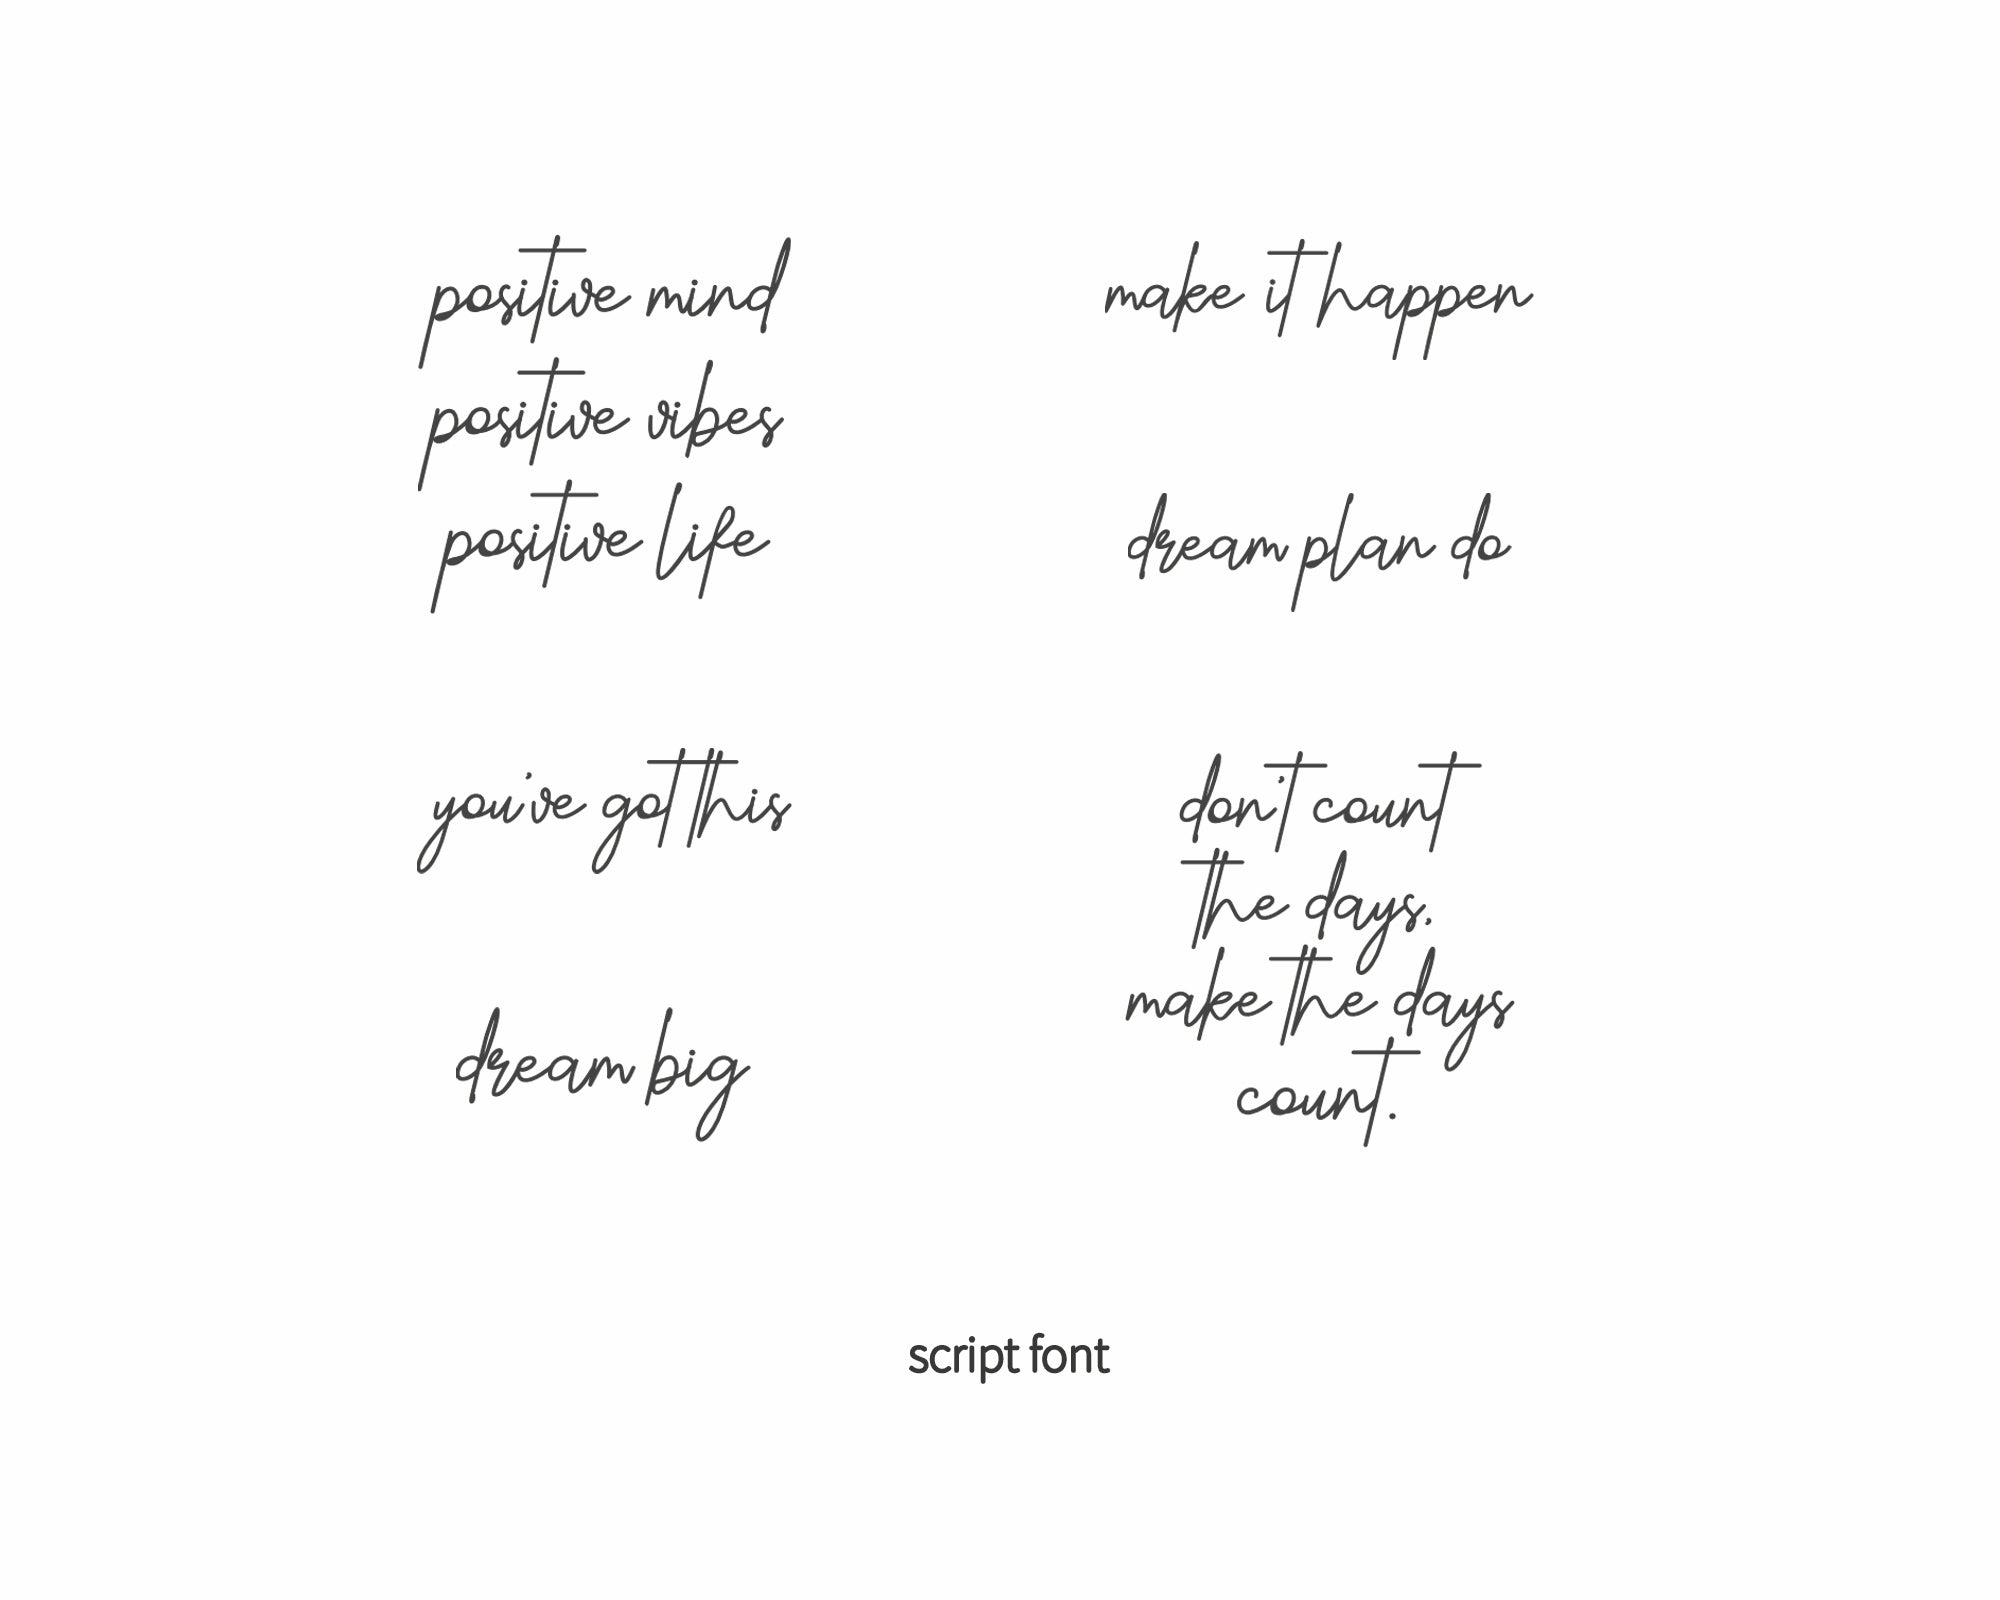 positive mind
positive vibes
positive life
you've got this
dream big
make it happen
dream plan do
don't count
the days,
make the days
count.
script font